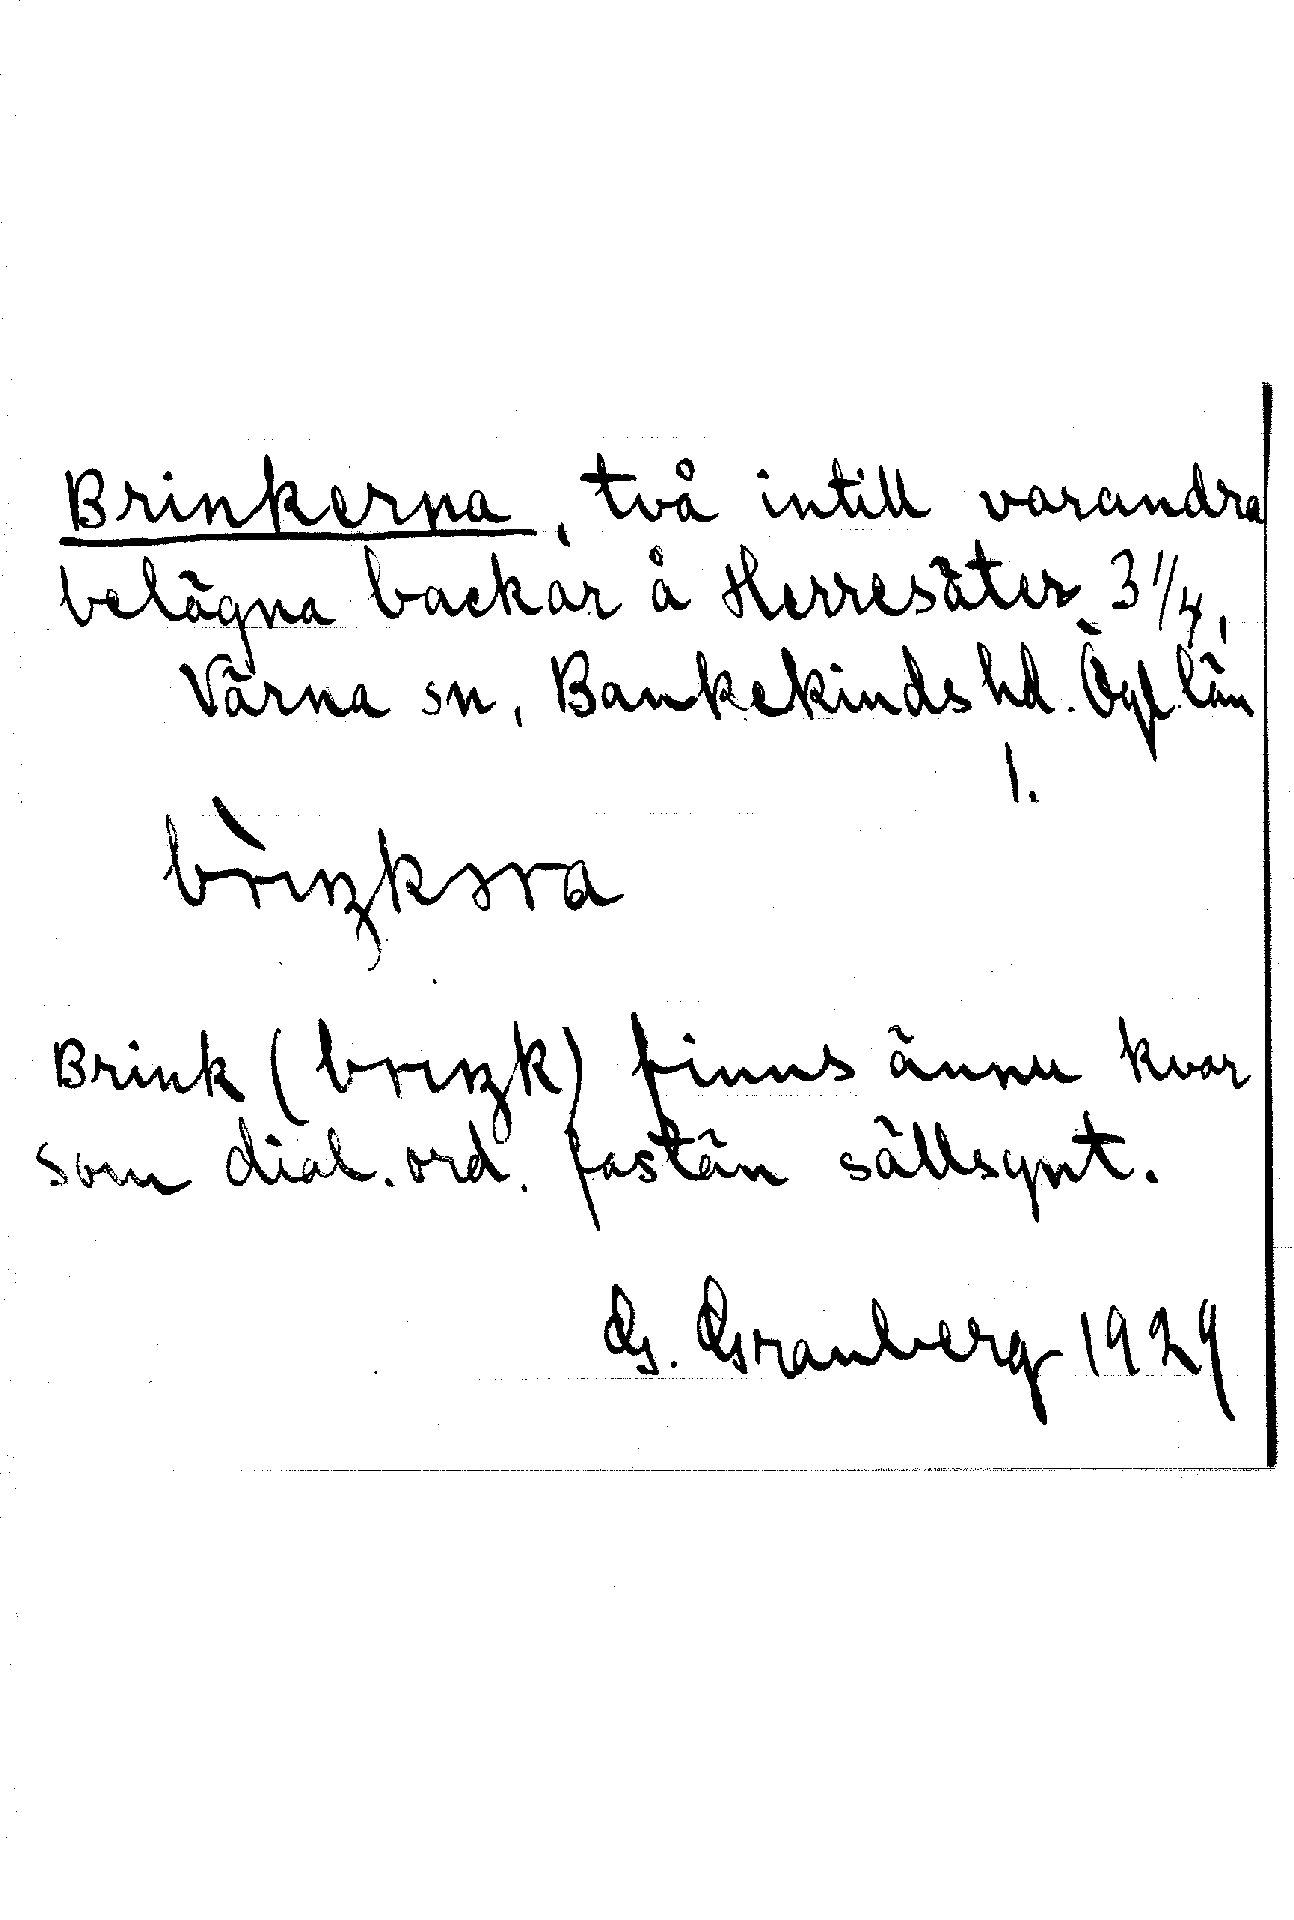 Brinkerna, två intill varandra
belägna backar å Herresäter 3 1/4,
Värna sn, Bankekinds hd. Ögl. län
1.
brɪŋkəra
Brink (brɪŋk) finns ännu kvar
som dial. ord. fastän sällsynt.
G. Granberg 1929